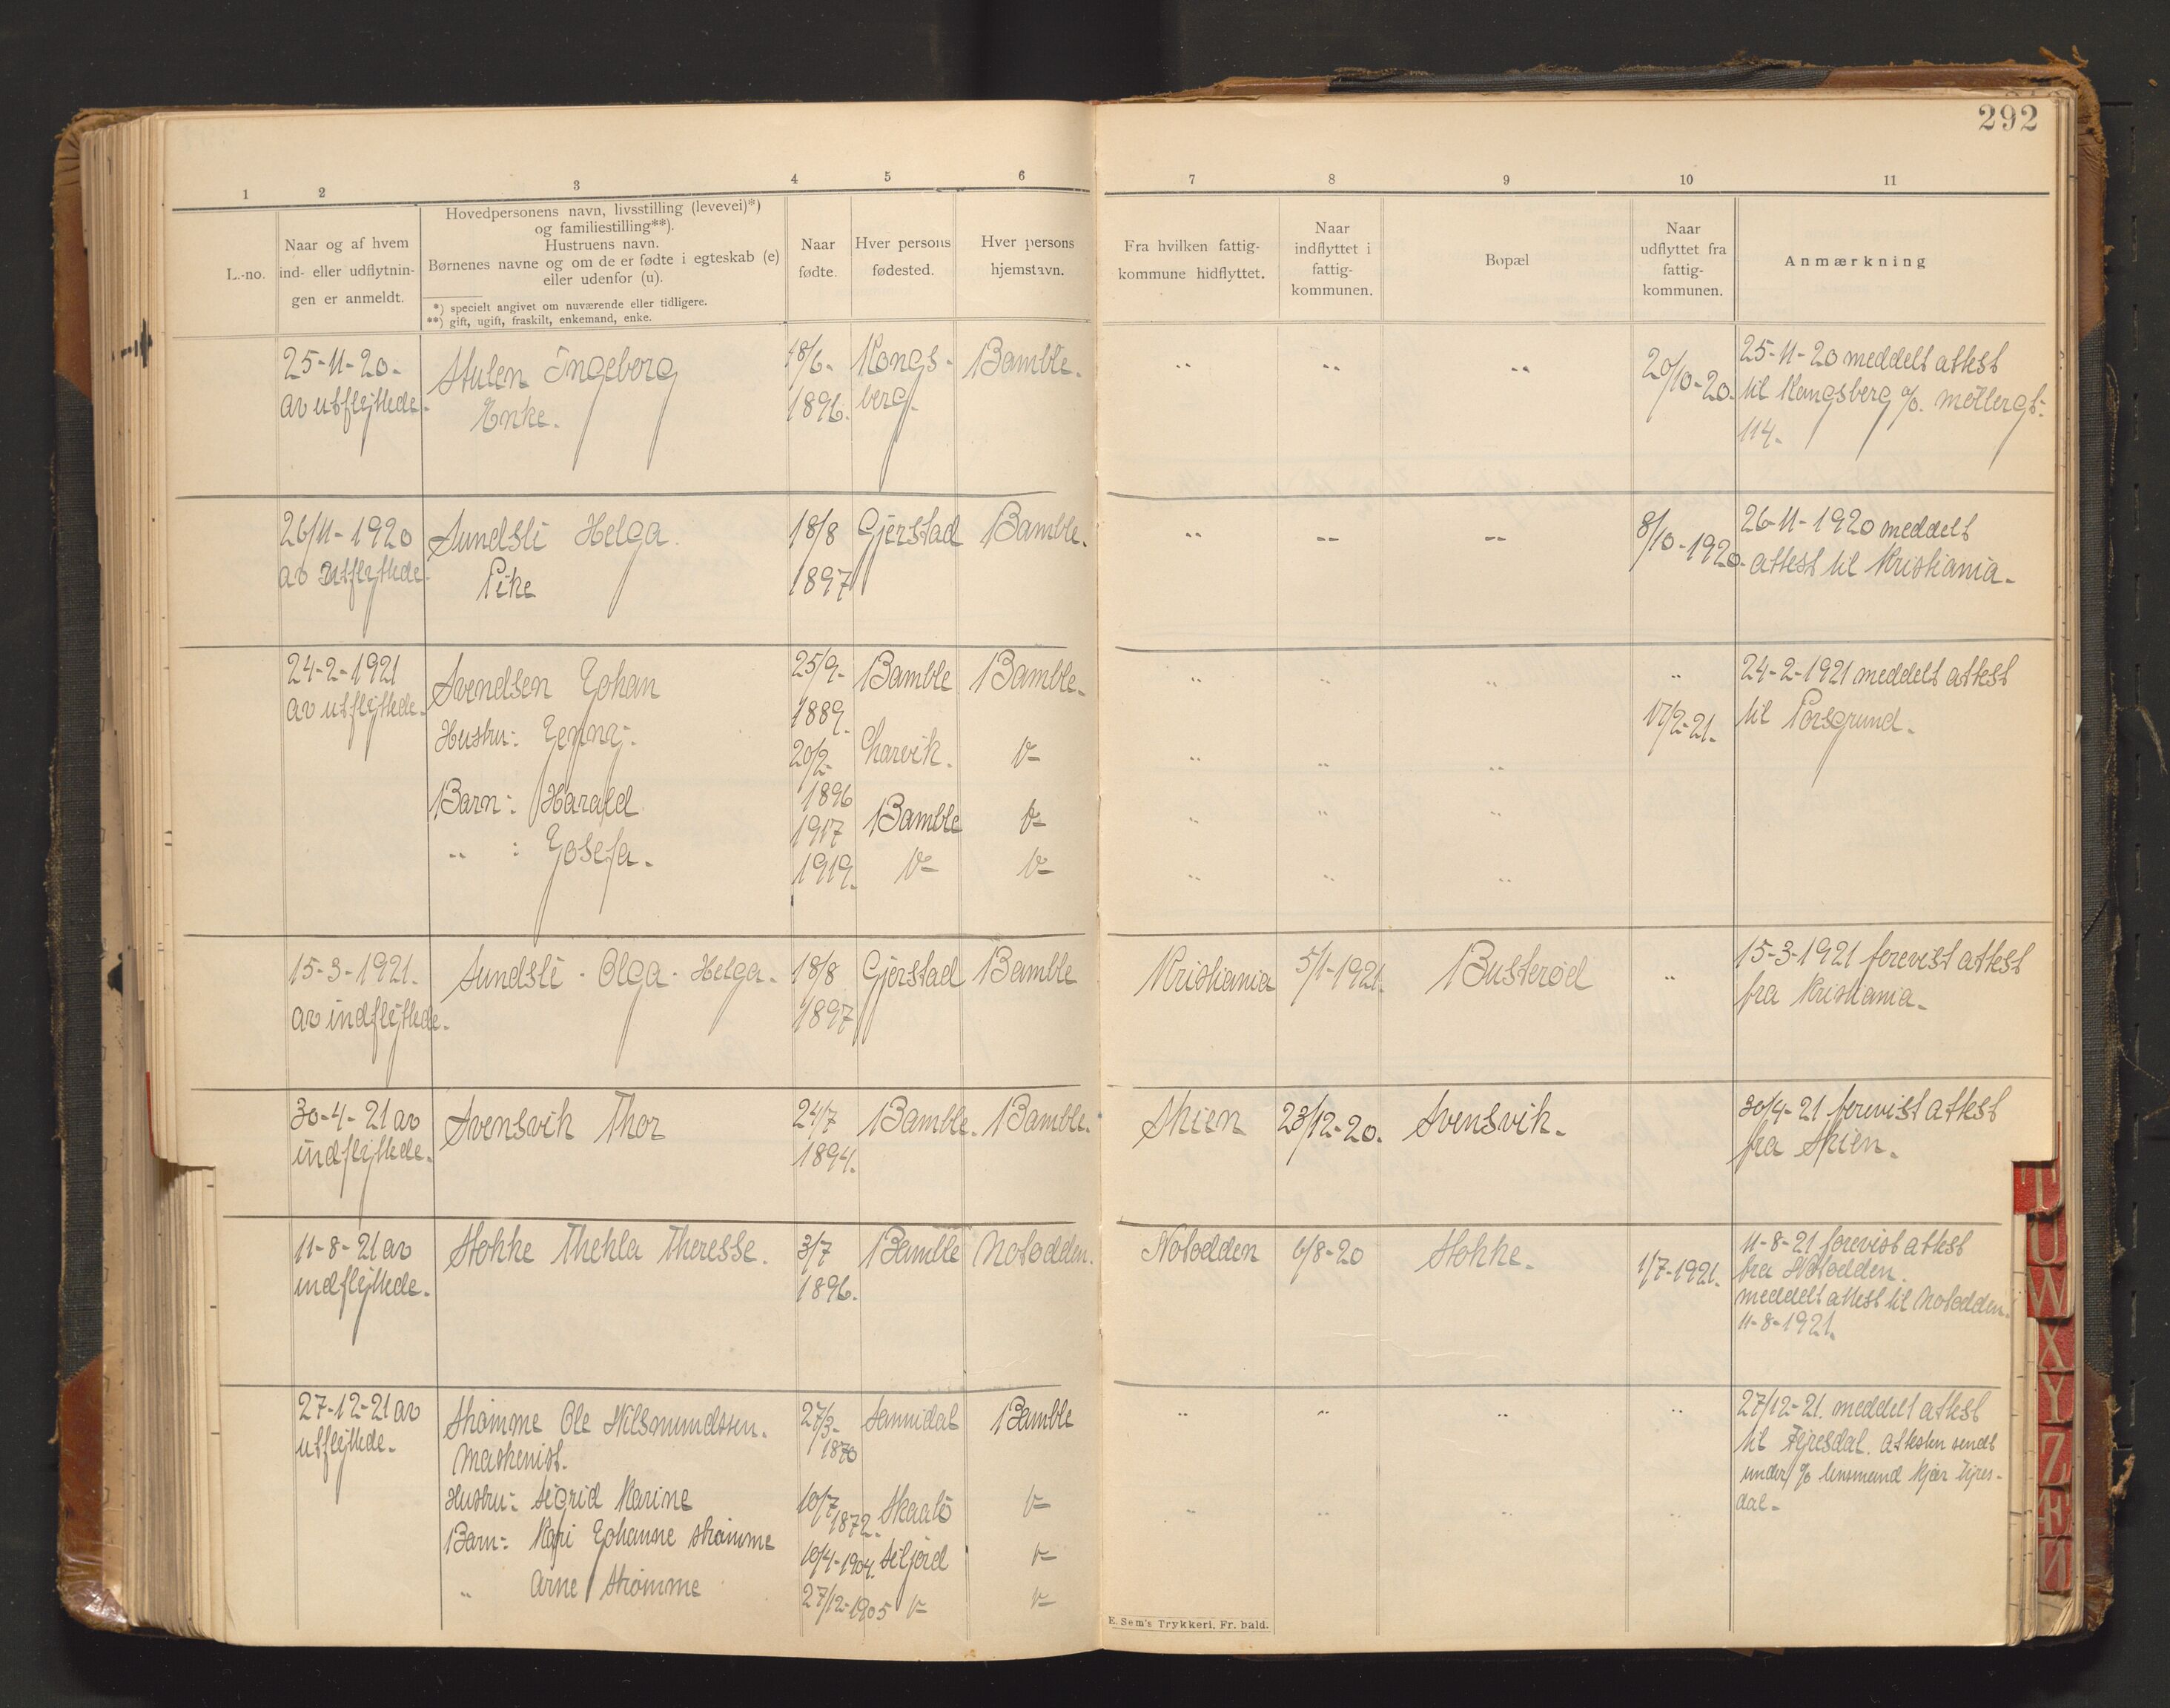 292
1 2 3 4 5 6 7 8 9 10 11
L.-no.
Naar og af hvem
ind- eller udflytnin-
gen er anmeldt.
Hovedpersonens navn, livsstilling (levevei)*)
og familiestilling**).
Hustruens navn.
Børnenes navne og om de er fødte i egteskab (e)
eller udenfor (u).
*) specielt angivet om nuværende eller tidligere.
**) gift, ugift, fraskilt, enkemand, enke.
Naar
fødte.
Hver persons
fødested.
Hver persons
hjemstavn.
Fra hvilken fattig-
kommune hidflyttet.
Naar
indflyttet i
fattig-
kommunen.
Bopæl
Naar
udflyttet fra
fattig-
kommunen.
Anmærkning
25-11-20.
av utflyttede.
Stulen Ingeberg
Enke.
18/6-
1896.
Kongs-
berg.
Bamble.
" " "
20/10-20.
25-11-20 meddelt attest
til Kongsberg o/o. Møllergt.
114.
26/11-1920
av utflyttede.
Sundsli Helga.
Pike
18/8
1897
Gjerstad
Bamble.
" " "
8/10-1920.
26-11-1920 meddelt
attest til Kristiania.
24-2-1921
av utflyttede.
Svendsen Johan
Hustru: Jenny.
Barn: Harald
" : Josefa.
25/9-
1889.
20/2-
1896
1917
1919.
Bamble
Larvik.
Bamble
"
Bamble.
"
"
"
" " " "
17/2-21.
24-2-1921 meddelt attest
til Porsgrund.
15-3-1921.
av indflyttede.
Sundsli - Olga - Helga.
18/8
1897
Gjerstad
Bamble
Kristiania
5/1-1921.
Busterød
"
15-3-1921 forevist attest
fra Kristiania.
30-4-21 av
indflyttede.
Svensvik Thor
24/7
1894.
Bamble.
Bamble.
Skien
23/12-20.
Svensvik.
30/4-21 forevist attest
fra Skien.
11-8-21 av
indflyttede.
Stokke Thekla Theresse.
3/7
1896.
Bamble
Notodden.
Notodden
6/8-20
Stokke.
1/7-1921.
11-8-21 forevist attest
fra Notodden.
meddelt attest til Notodden.
11-8-1921.
27-12-21 av
utflyttede.
Strømme Ole Nilsmundssen.
Maskenist.
Hustru: Sigrid Karine
Barn: Kari Johanne Strømme
" Arne Strømme
27/3-
1870
10/7
1872.
10/4-1904.
27/12-1905
Sannidal
Skaatø
Seljord
"
Bamble
"
"
"
" " " "
27/12-21. meddelt attest
til Fyresdal. Attesten sendt
under o/o lensmand Kjær Fyres-
dal.
E. Sem's Trykkeri, Fr. hald.
T
U
W
X
Y
Z
Æ
Ø